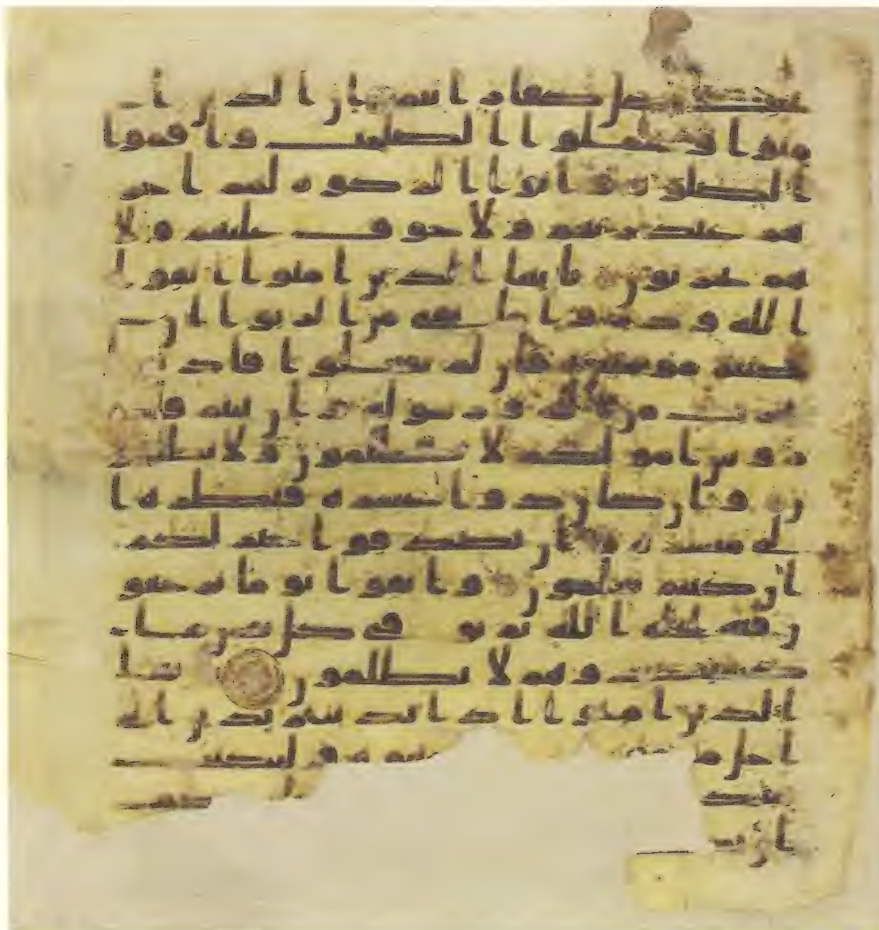 يحب كل كفار اثيم ان الذين ا
منوا وعملوا الصلحت واقموا
الصلوة واتوا الزكوة لهم اجر
هم عند ربهم ولا خوف عليهم ولا
هم يحزنون يايها الذين امنوا اتقوا
الله وذروا ما بقي من الربوا ان
كنتم مومنين فان لم تفعلوا فاذنوا
بحرب من الله ورسوله وان تبتم فلكم
روس امولكم لا تظلمون ولا تظلمو
ن وان كان ذو عسرة فنظرة ا
لى ميسرة وان تصدقوا خير لكم
ان كنتم تعلمون واتقوا يوما ترجعو
ن فيه الى الله ثم توفى كل نفس ما
كسبت وهم لا يظلمون يايها
الذين امنوا اذا تداينتم بدين الى
اجل مسمى فاكتبوه وليكتب
بينكم كتب
ان يكتب